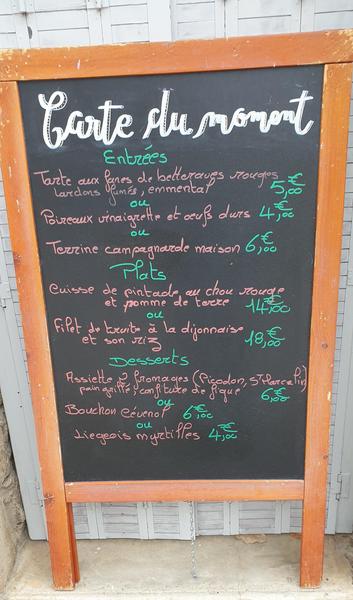 Carte du moment
Entrées
Tarte aux fanes de betteraves rouges
lardons fumés, emmental 5,00€
ou
Poireaux vinaigrette et oeufs durs 4,00€
ou
Terrine campagnarde maison 6,00€
Plats
Cuisse de pintade au chou rouge
et pomme de terre 14,00€
ou
Filet de truite à la dijonnaise
et son riz 18,00€
Desserts
Assiette 2 fromages (Picodon, St Marcelin)
pain grillé, confiture de figue 6,00€
ou
Bouchon Cévenol 6,00€
ou
Liegeois myrtilles 4,00€